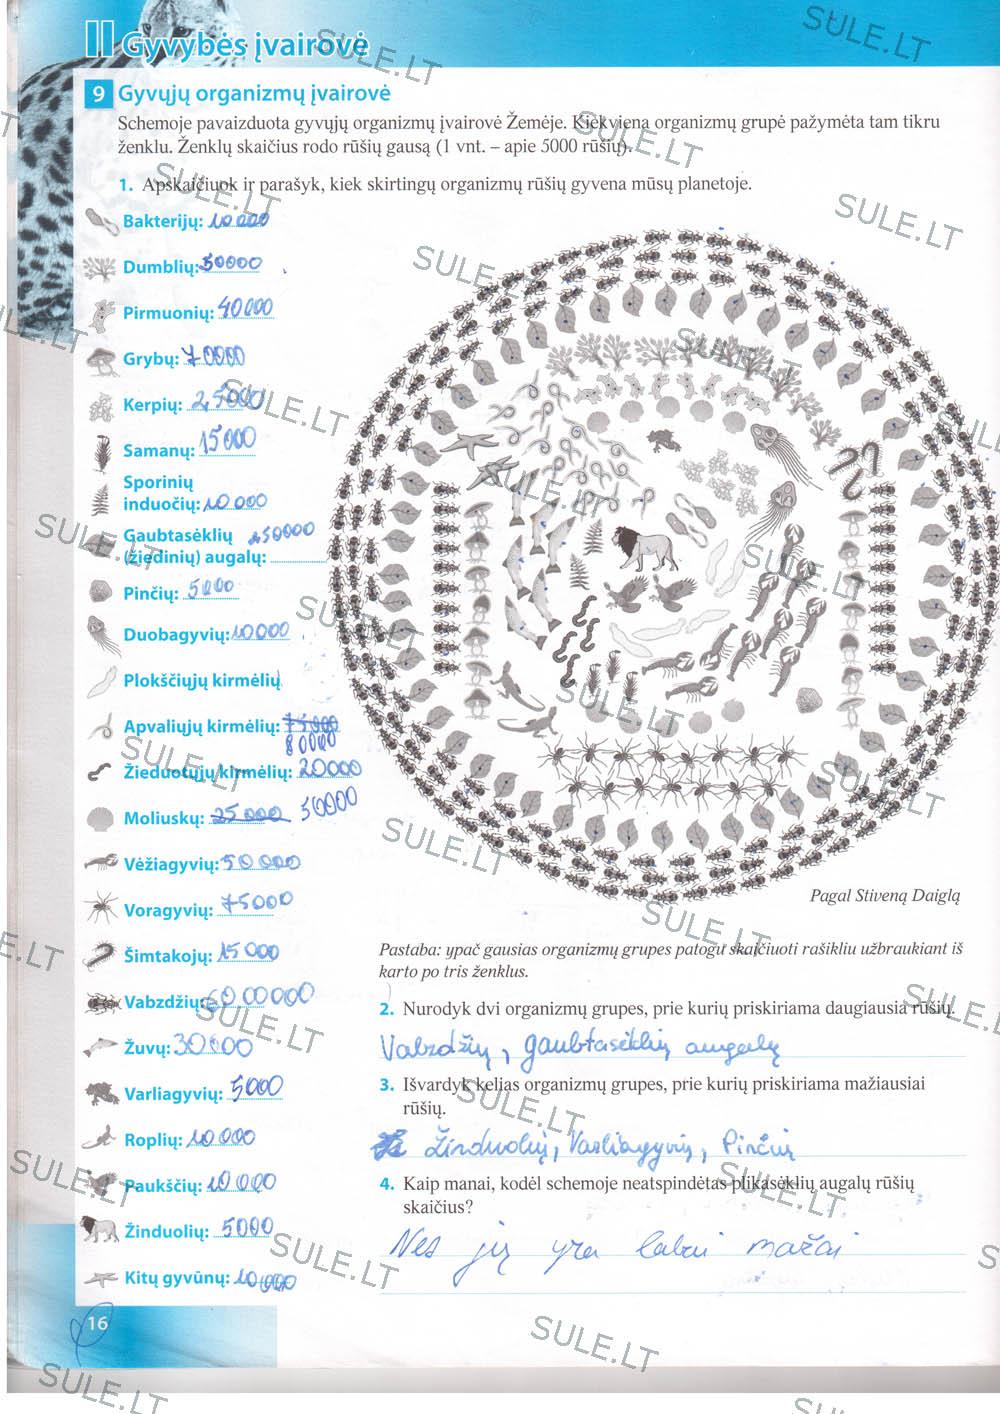 II Gyvybės įvairovė
9 Gyvųjų organizmų įvairovė
Schemoje pavaizduota gyvųjų organizmų įvairovė Žemėje. Kiekviena organizmų grupė pažymėta tam tikru
ženklu. Ženklų skaičius rodo rūšių gausą (1 vnt. – apie 5000 rūšių).
1. Apskaičiuok ir parašyk, kiek skirtingų organizmų rūšių gyvena mūsų planetoje.
Bakterijų: 10000
Dumblių: 50000
Pirmuonių: 40000
Grybų: 70000
Kerpių: 25000
Samanų: 15000
Sporinių
induočių: 10 000
Gaubtasėklių 250000
(žiedinių) augalų:
Pinčių: 5000
Duobagyvių: 10000
Plokščiųjų kirmėlių
Apvaliųjų kirmėlių: 75000
80000
Žieduotųjų kirmėlių: 20000
Moliuskų: 25000 50000
Vėžiagyvių: 50000
Voragyvių: 75000
Šimtakojų: 15000
Vabzdžių:
Žuvų: 30000
Varliagyvių: 5000
Roplių: 10000
Paukščių: 10000
Žinduolių: 5000
Kitų gyvūnų: 10000
Pagal Stiveną Daiglą
Pastaba: ypač gausias organizmų grupes patogu skaičiuoti rašikliu užbraukiant iš
karto po tris ženklus.
2. Nurodyk dvi organizmų grupes, prie kurių priskiriama daugiausia rūšių.
Vabzdžių, gaubtasėklių augalų
3. Išvardyk kelias organizmų grupes, prie kurių priskiriama mažiausiai
rūšių.
Žinduolių, Varliagyvių, Pinčių
4. Kaip manai, kodėl schemoje neatspindėtas plikasėklių augalų rūšių
skaičius?
Nes jų yra labai mažai
16
SULE.LT